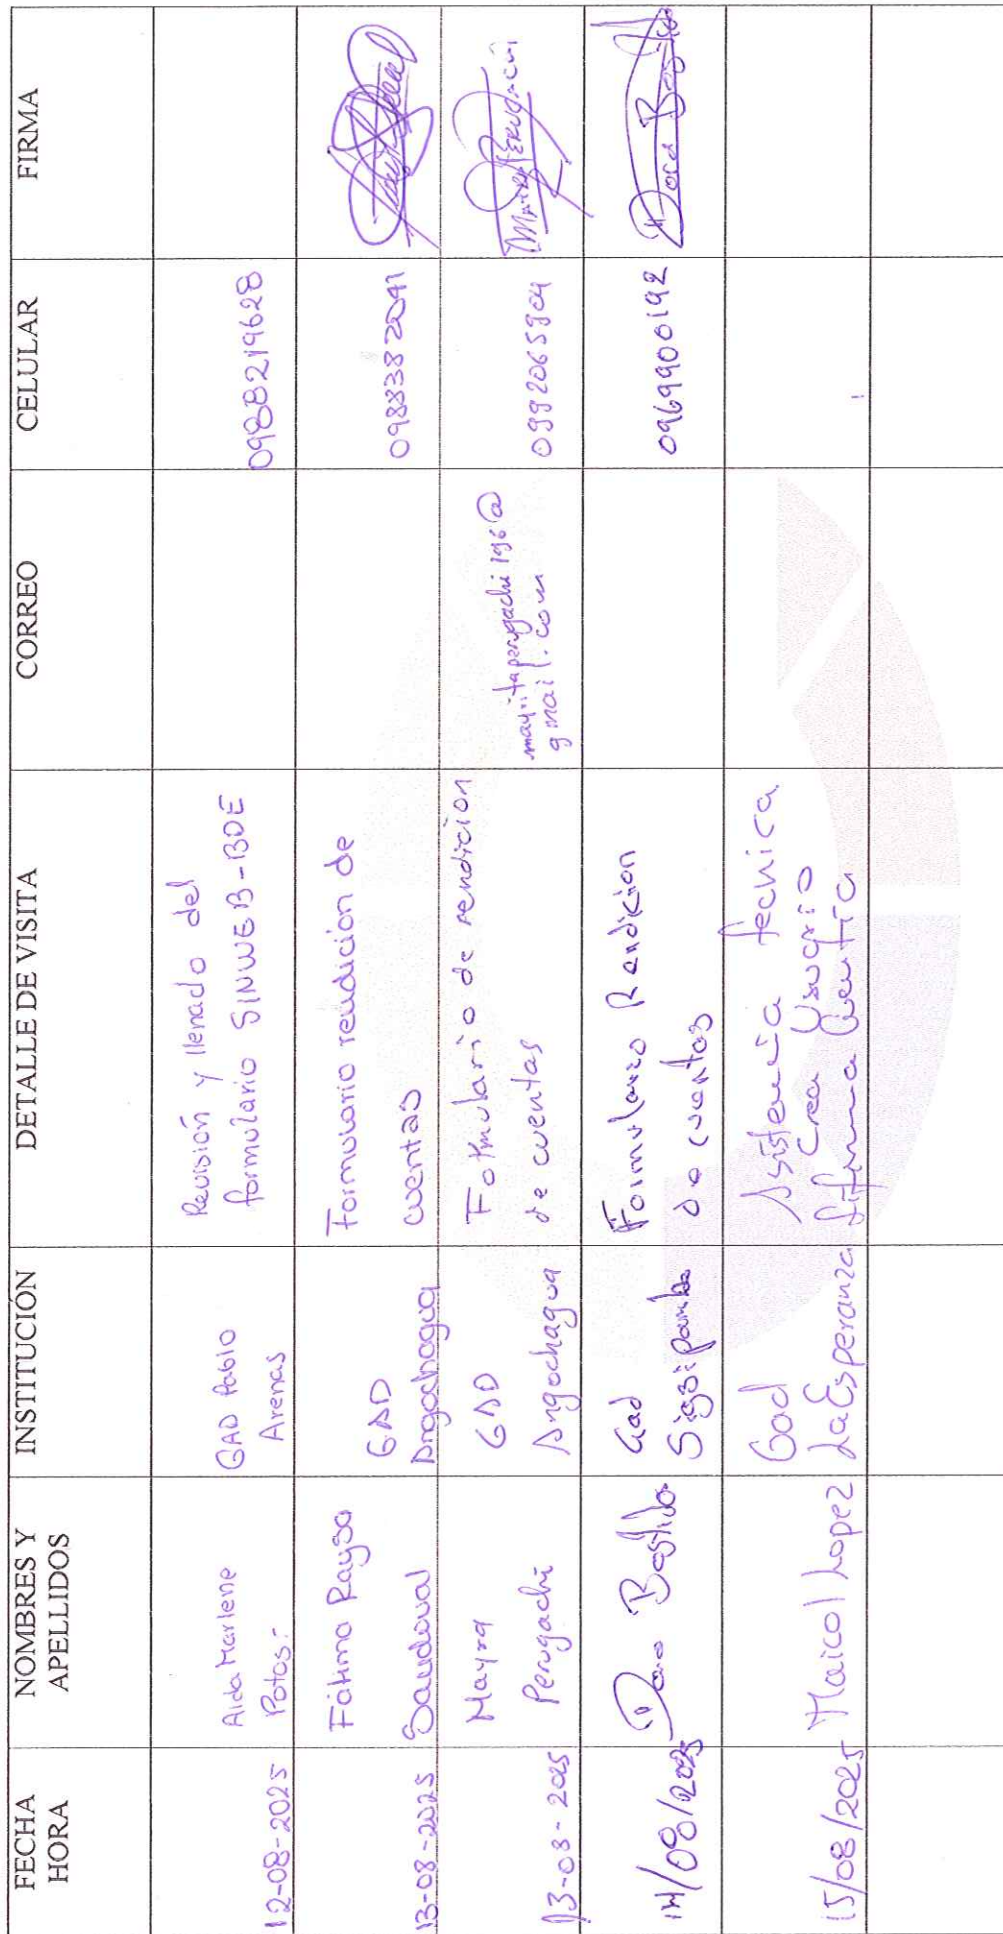 FECHA
HORA
NOMBRES Y
APELLIDOS
INSTITUCIÓN
DETALLE DE VISITA
CORREO
CELULAR
FIRMA
12-08-2025
Aida Marlene
Potosi
GAD Pablo
Arenas
Revisión y llenado del
formulario SINWEB-BDE
0988219628
13-08-2025
Fátima Raysa
Sandoval
GAD
Angochagua
Formulario rendición de
cuentas
0983382091
13-08-2025
Mayra
Perugachi
GAD
Angochagua
Formulario de rendicion
de cuentas
mayritaperugachi196@
gmail.com
0992065904
Mayra Perugachi
14/08/2025
Dora Bastidas
Gad
Sigsipamba
Formulario Rendicion
de cuentas
0969900192
Dora Bastidas
15/08/2025
Maicol Lopez
Gad
La Esperanza
Asistencia tecnica
Crea Usuario